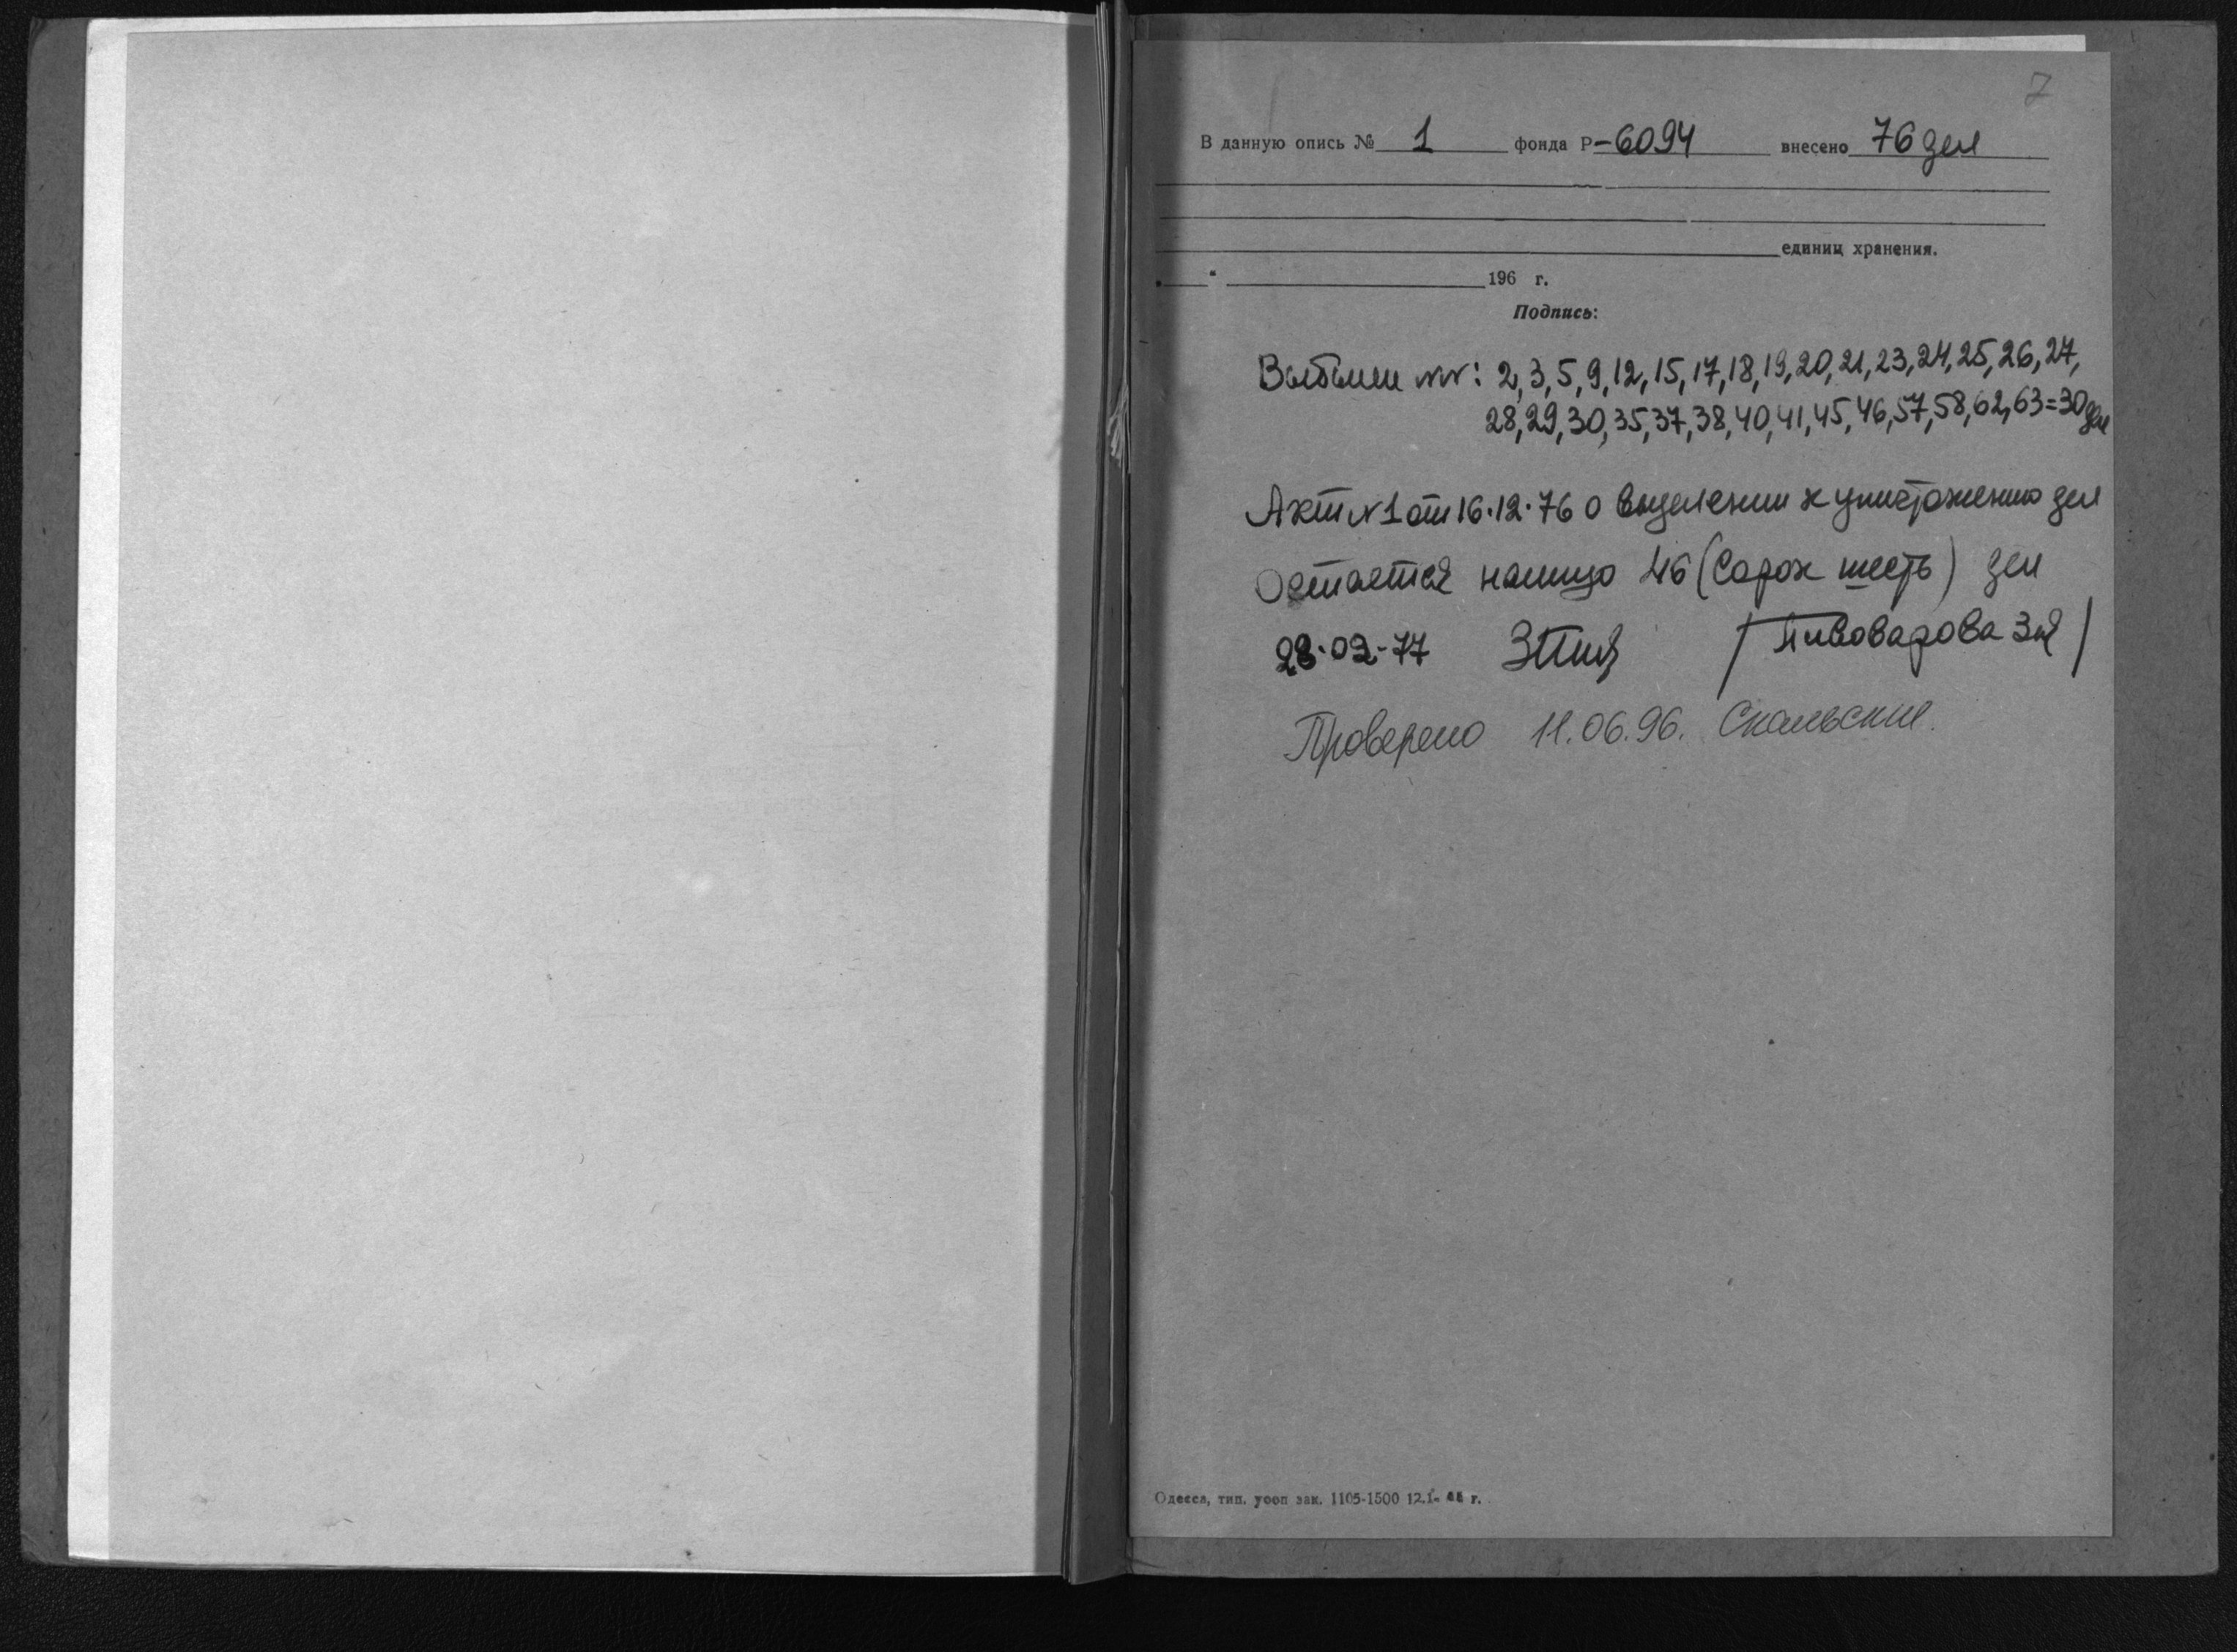 7
В данную опись № 1 фонда Р-6094 внесено 76 дел
единиц хранения.
„ " 196 г.
Подпись:
Выбыли №№: 2, 3, 5, 9, 12, 15, 17, 18, 19, 20, 21, 23, 24, 25, 26, 27,
28, 29, 30, 35, 37, 38, 40, 41, 45, 46, 57, 58, 62, 63 = 30 дел
Акт №1 от 16.12.76 о выделении к уничтожению дел
Остается налицо 46 (Сорок шесть) дел
28.02.77 / Пивоварова ЗЯ /
Проверено 11.06.96.
Одесса, тип. уооп зак. 1105-1500 12.1. г.